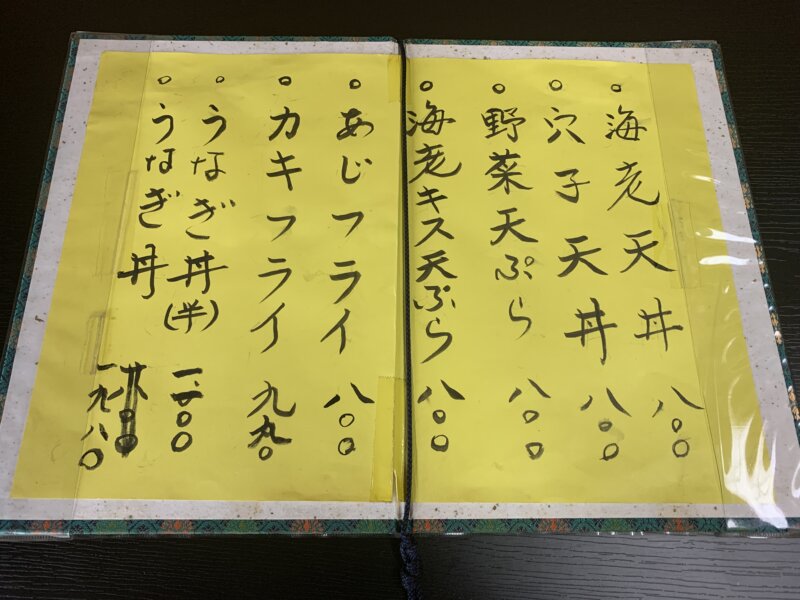 ○海老天丼 八〇〇
○穴子天丼 八〇〇
○野菜天ぷら 八〇〇
○海老キス天ぷら 八〇〇
○あじフライ 八〇〇
○カキフライ 九九〇
○うなぎ丼(半)
○うなぎ丼 一九八〇